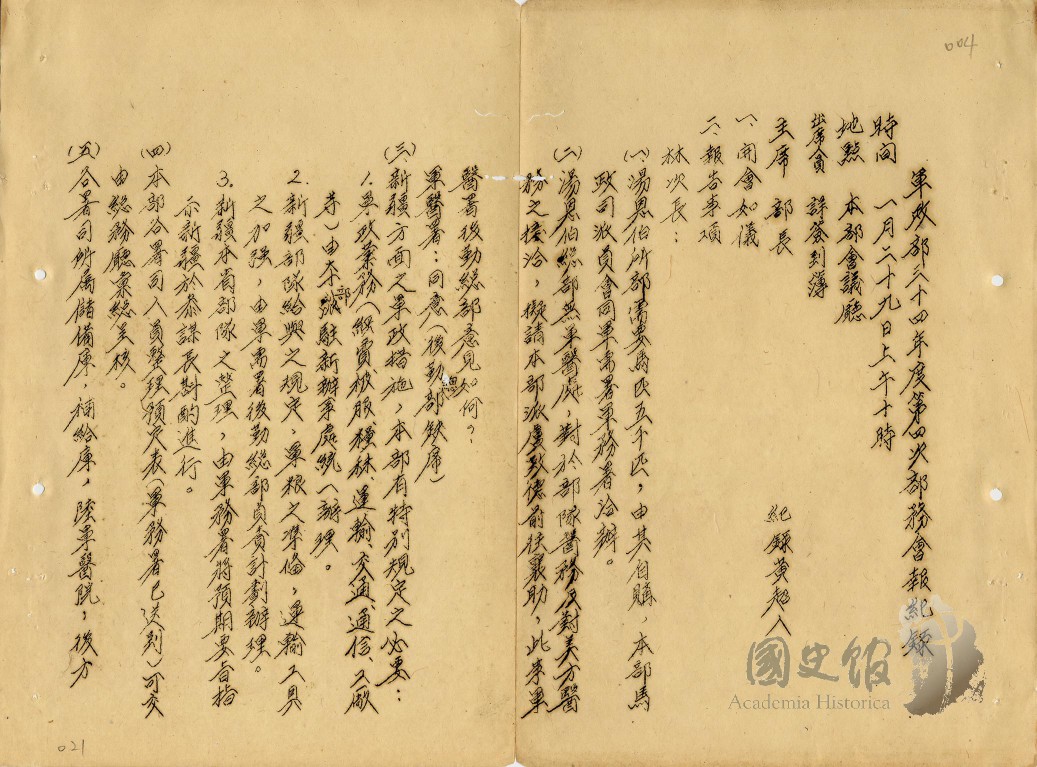 004
軍政部三十四年度第四次部務會報紀錄
時間　一月二十九日上午十時
地點　本部會議廳
出席人員　詳簽到簿
主席　部長
紀錄 黃超人
一、開會如儀
二、報告事項
林次長：
(一)湯恩伯所部需要馬匹五千匹，由其自購，本部馬
政司派員會同軍需署軍務署洽辦。
(二)湯恩伯總部無軍醫處，對於部隊醫務及對美方醫
務之接洽，擬請本部派盧致德前往襄助，此事軍
醫署後勤總部意見如何？
軍醫署：同意（後勤總部缺席）
(三)新疆方面之軍政措施，本部有特別規定之必要：
1.軍政業務（經費、被服、械林、運輸、交通、通信、工廠
等）由本部派駐新辦事處統一辦理。
2.新疆部隊給與之規定，軍糧之準備，運輸工具
之加強，由軍需署後勤總部負責計劃辦理。
3.新疆本省部隊之整理，由軍務署將預期要旨指
示新疆於參謀長斟酌進行。
(四)本部各署司人員整理預定表（軍務署已送到）可交
由總務廳彙總呈核。
(五)各署司所屬儲備庫，補給庫，陸軍醫院，後方
021
國史館
Academia Historica